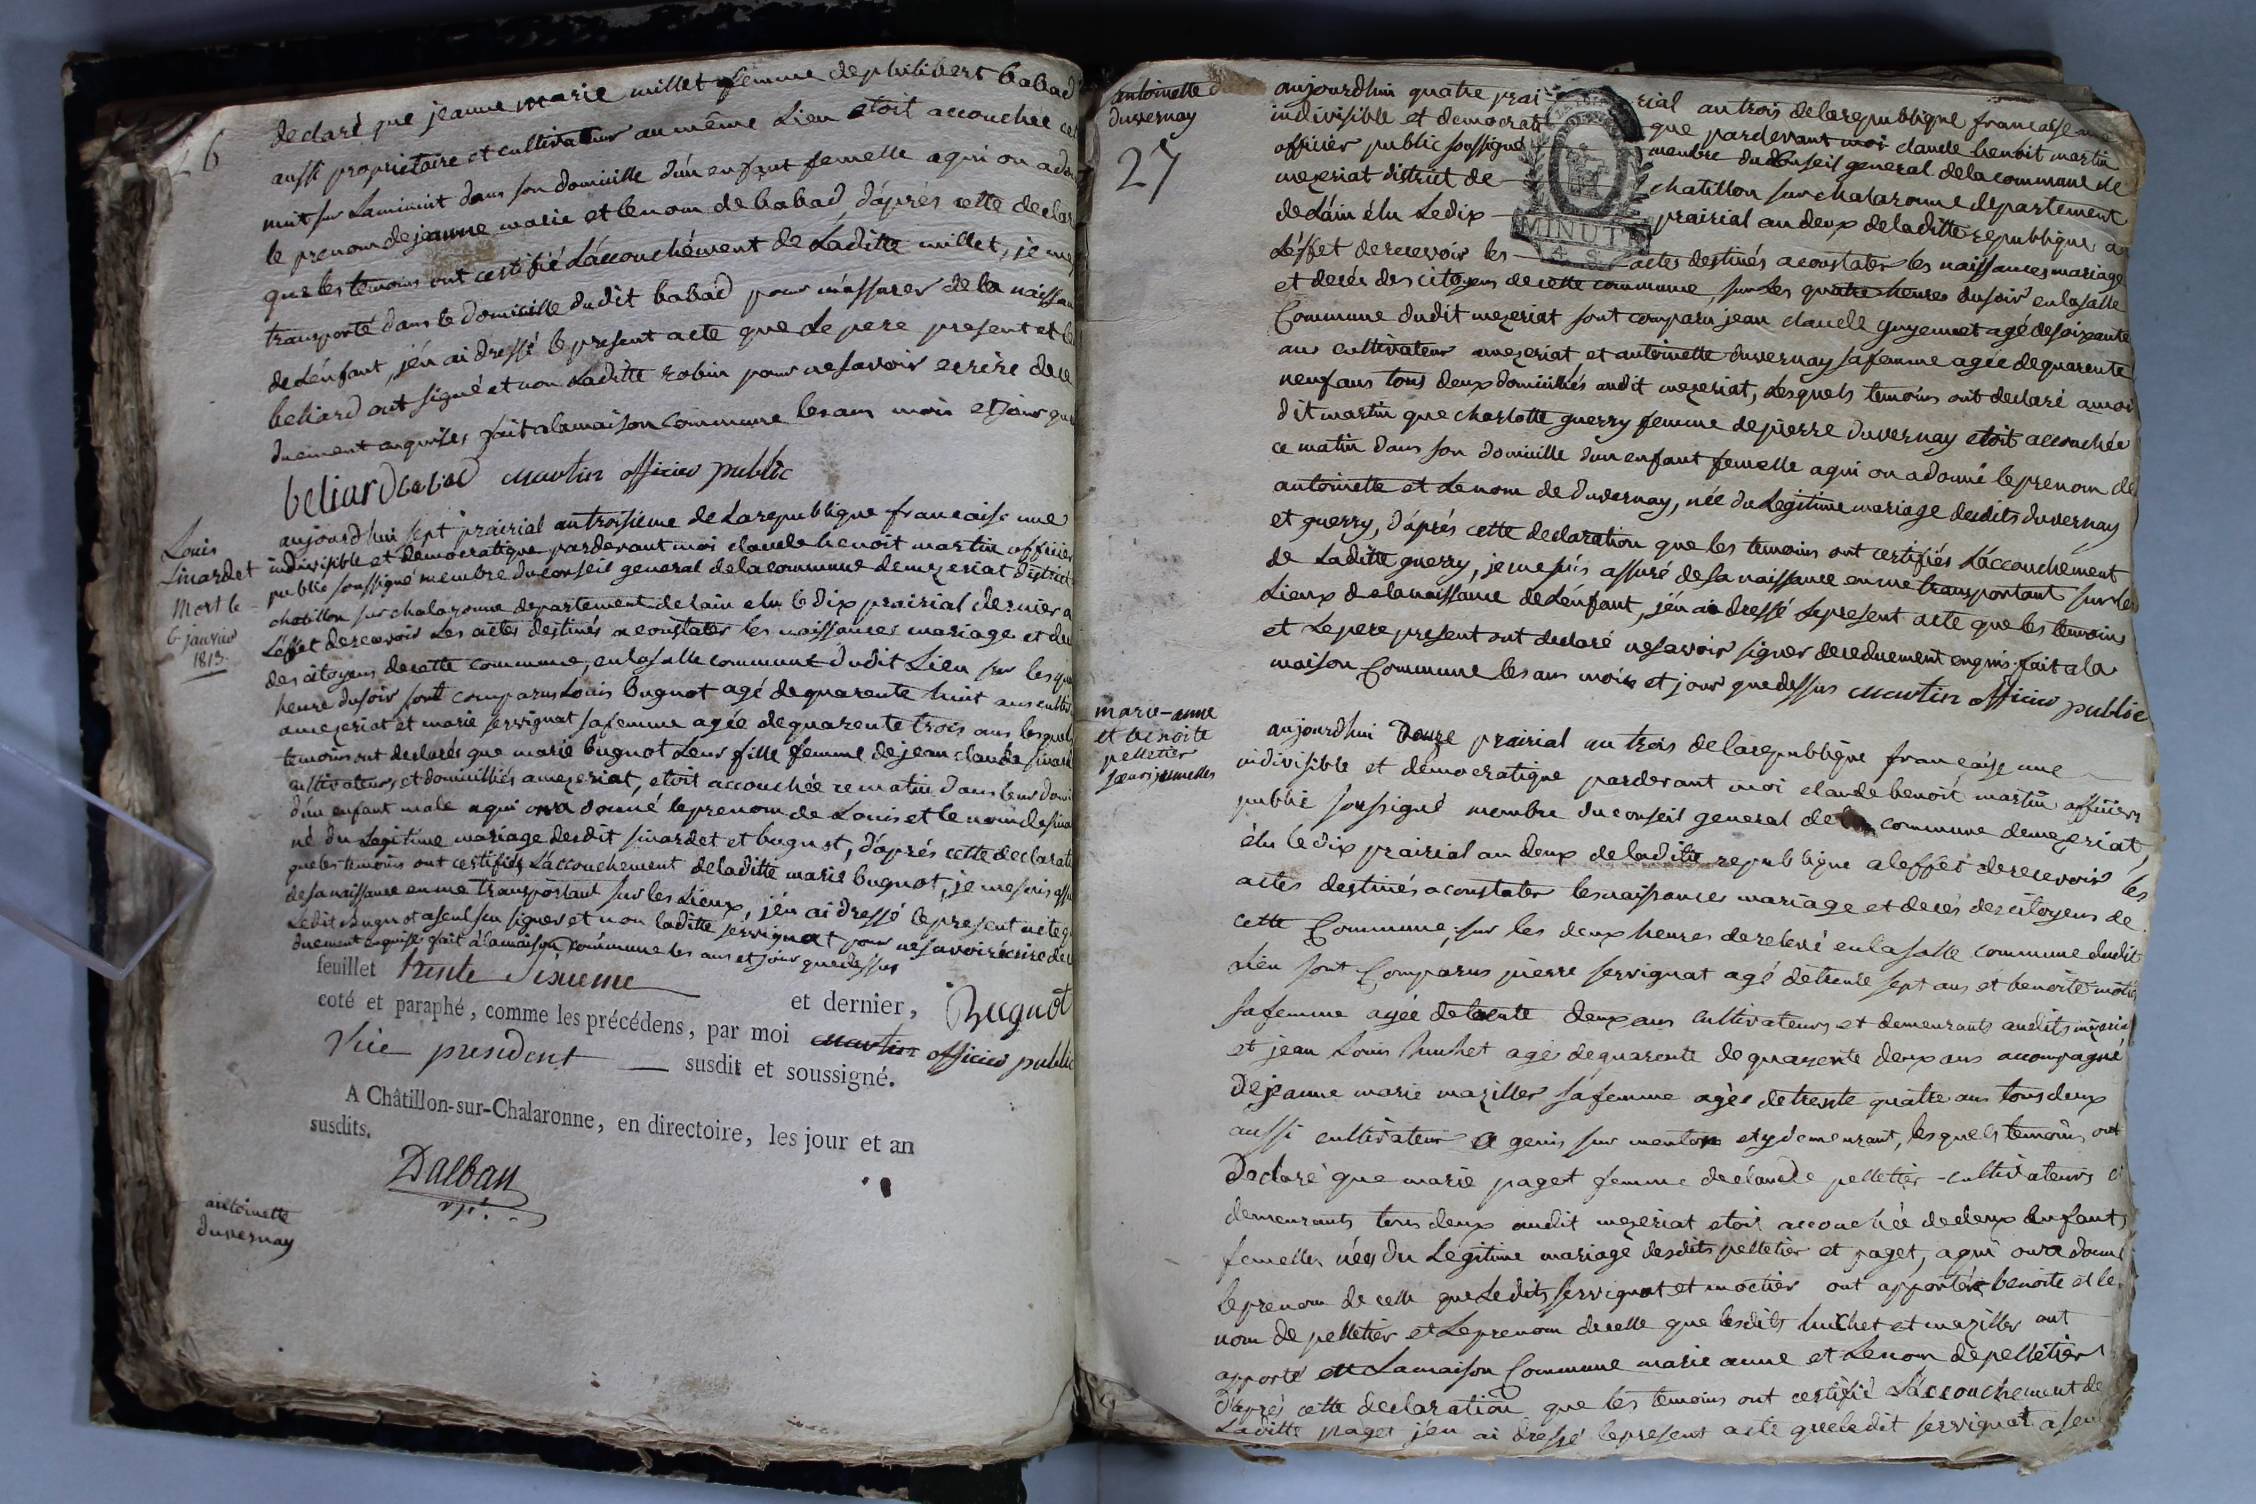 6
declaré que jeanne marie millet femme de philibert babad
aussi proprietaire et cultivateur au même Lien etoit accouchée
nuit sur Laminuit dans son domicille d'un enfant femelle aqui on a
le prenom de jeanne marie et le nom de babad, d'aprés cette
que les temoins ont certifié L'accouchément de Laditte millet, je
transporté dans le domicille dudit babad pour m'assurer de la
de L'énfant, j'én ai dressé le present acte que Le pere present et
beliard ont signé et non Laditte robin pour ne savoir ecrire de ce
duement enquises fait a la maison Commune les ans mois et jour que
beliard babad martin officier public
Louis
Sinardet
Mort le
6 janvier
1813.
aujourdhui sept prairial an troisième de La republique francaise une
indivisible et democratique pardevant moi claude benoit martin officier
public soussigné membre du conseil general de la commune de mezeriat district
chatillon sur chalaronne departement de lain elu le dix prairial dernier a
L'éffet de recevoir Les actes destinés a constater les naissances mariage et
des citoyens de cette commune, en la salle commune dudit Lieu sur les
heure du soir sont comparus Louis Bugnot agé de quarente huit ans
a mezeriat et marie servignat sa femme agée de quarente trois ans lesquels
temoins ont declarés que marie bugnot Leur fille femme de jean claude
cultivateurs et domicilliés a mezeriat, etoit accouchée ce matin dans leur
d'un enfant male aqui on a donné le prenom de Louis et le nom de
né du Legitime mariage desdit sinardet et bugnot, d'aprés cette
que les temoins ont certifiés L'accouchement de laditte marie bugnot, je me suis
de sa naissance en me transportant sur les Lieux, j'én ai dressé le present acte
Ledit Bugnot a seul su signer et non laditte servignat pour ne savoir écrire de
duement enquises fait à la maison commune les ans et jour que dessus
feuillet trente sixieme et dernier, Bugnot
coté et paraphé, comme les précédens, par moi martin officier public
Vice president susdit et soussigné.
A Châtillon-sur-Chalaronne, en directoire, les jour et an
susdits.
Dalban
v.p.
antoinette
duvernay
antoinette
duvernay
27
MINUTE
4 S.
aujourdhui quatre prairial an trois de la republique francaise une
indivisible et democratique pardevant moi claude benoit martin
officier public soussigné membre du Conseil general de la commune de
mezeriat district de chatillon sur chalaronne departement
de Lain élu Le dix prairial an deux de laditte republique a
L'éffet de recevoir les actes destinés a constater les naissances mariage
et decés des citoyens de cette commune, sur Les quatre heures du soir en la salle
Commune dudit mezeriat sont comparu jean claude guyennet agé de soixante
ans cultivateur a mezeriat et antoinette duvernay sa femme agée de quarente
neuf ans tous deux domicilliés audit mezeriat, Lesquels temoins ont declaré a moi
dit martin que charlotte guerry femme de pierre duvernay etoit accouchée
ce matin dans son domicille d'un enfant femelle aqui on a donné le prenom de
antoinette et Le nom de duvernay, née du Legitime mariage desdits duvernay
et guerry, d'aprés cette declaration que les temoins ont certifiés L'accouchément
de Laditte guerry, je me suis assuré de sa naissance en me transportant sur les
Lieux de la naissance de L'énfant, j'én ai dressé Le present acte que les temoins
et Le pere present ont declaré ne savoir signer de ce duement enquis. fait a la
maison Commune les ans mois et jour que dessus martin officier public
marie-anne
et benoite
pelletier
sœurs jumelles
aujourdhui Douze prairial an trois de la republique française une
indivisible et démocratique pardevant moi claude benoit martin officier
public soussigné membre du conseil general de la commune de mezeriat,
élu le dix prairial an deux de laditte republique a leffét de recevoir les
actes destinés a constater les naissances mariage et decés des citoyens de
cette Commune, sur les deux heures de relevé en la salle commune dudit
Lieu sont Comparus pierre servignat agé de trente sept ans et benoite
sa femme agée de trente deux ans cultivateurs et demeurants audits mezeriat
et jean Louis huchet agé de quarente de quarente deux ans accompagné
De jeanne marie maziller sa femme agée de trente quatre ans tous deux
aussi cultivateur a genis sur menton et y demeurant, lesquels temoins ont
Declaré que marie paget femme de claude pelletier cultivateurs
demeurants tous deux audit mezeriat etoit accouchée de deux Enfants
femelles nées du Legitime mariage desdits pelletier et paget, aqui on a donné
le prenom de celle que Ledits servignat et moctier ont apportés benoite et le
nom de pelletier et Le prenom de celle que lesdits huchet et maziller ont
apporté en La maison Commune marie anne et Le nom de pelletier
D'aprés cette declaration que les temoins ont certifié L'accouchement de
Laditte paget j'en ai dressé le present acte que ledit servignat a seul